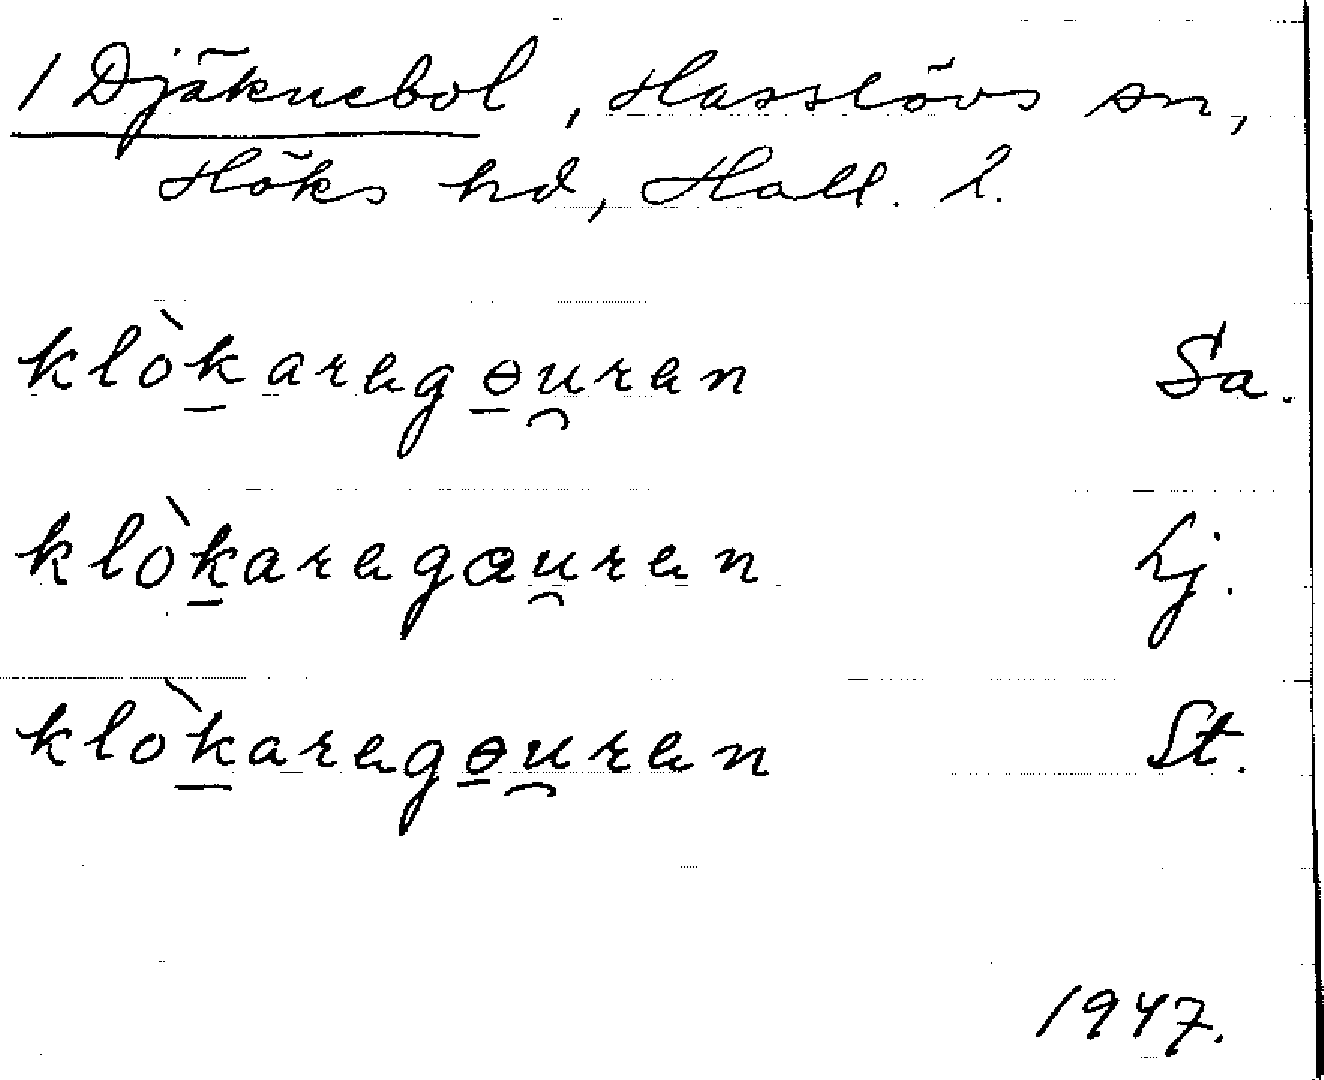 1 Djäknebol, Hasslövs sn,
Höks hd, Hall. l.
klòk̠aragɵ̠u̯ran Sa.
klòk̠aragau̯ran Lj.
klòk̠aragɵ̠u̯ran St.
1947.